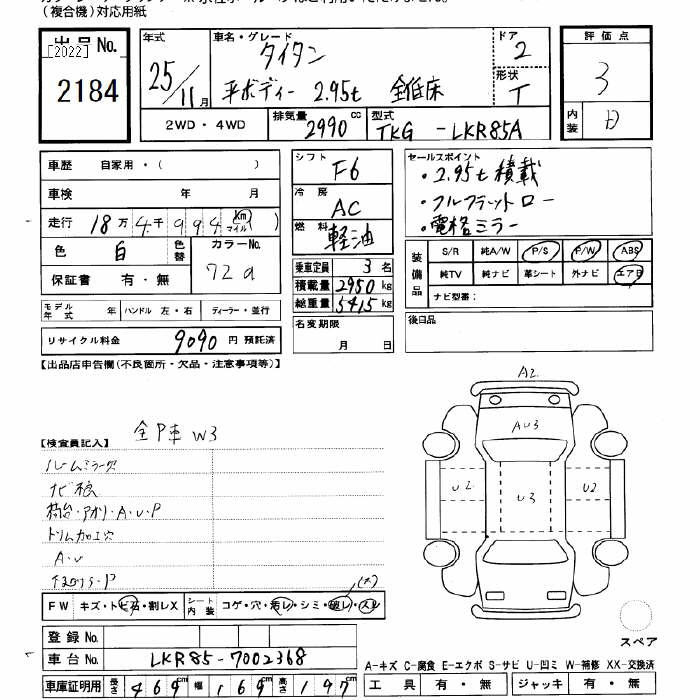 (複合機)対応用紙
出品No.
[2022]
2184
年式
25/11月
車名・グレード
タイタン
平ボディー 2.95t 全低床
ドア
2
形状
T
2WD・4WD
排気量 2990 cc
型式 TKG-LKR85A
評価点
3
内装
D
車歴 自家用・( )
車検 年 月
走行 18万4千994 km マイル ( )
色 白 色替
カラーNo.
72a
保証書 有・無
モデル年式 年 ハンドル 左・右 ディーラー・並行
リサイクル料金 9090 円 預託済
シフト F6
冷房 AC
燃料 軽油
乗車定員 3名
積載量 2950 kg
総重量 5415 kg
名変期限
月 日
セールスポイント
・2.95t積載
・フルフラットロー
・電格ミラー
装備品
S/R 純A/W P/S P/W ABS
純TV 純ナビ 革シート 外ナビ エアB
ナビ型番:
後日品
【出品店申告欄(不良箇所・欠品・注意事項等)】
全P車 W3
【検査員記入】
ルームミラー欠
ナビ根
荷台・アオリ・A・U・P
トリム加工穴
A・U
A2
AU3
U2
U3
U2
FW キズ・トビ石・割レX
シート内装 コゲ・穴・汚レ・シミ・破レ・スレ
登録No.
車台No. LKR85-7002368
車庫証明用 長さ 469cm 幅 169cm 高さ 197cm
スペア
A-キズ C-腐食 E-エクボ S-サビ U-凹ミ W-補修 XX-交換済
工具 有・無 ジャッキ 有・無